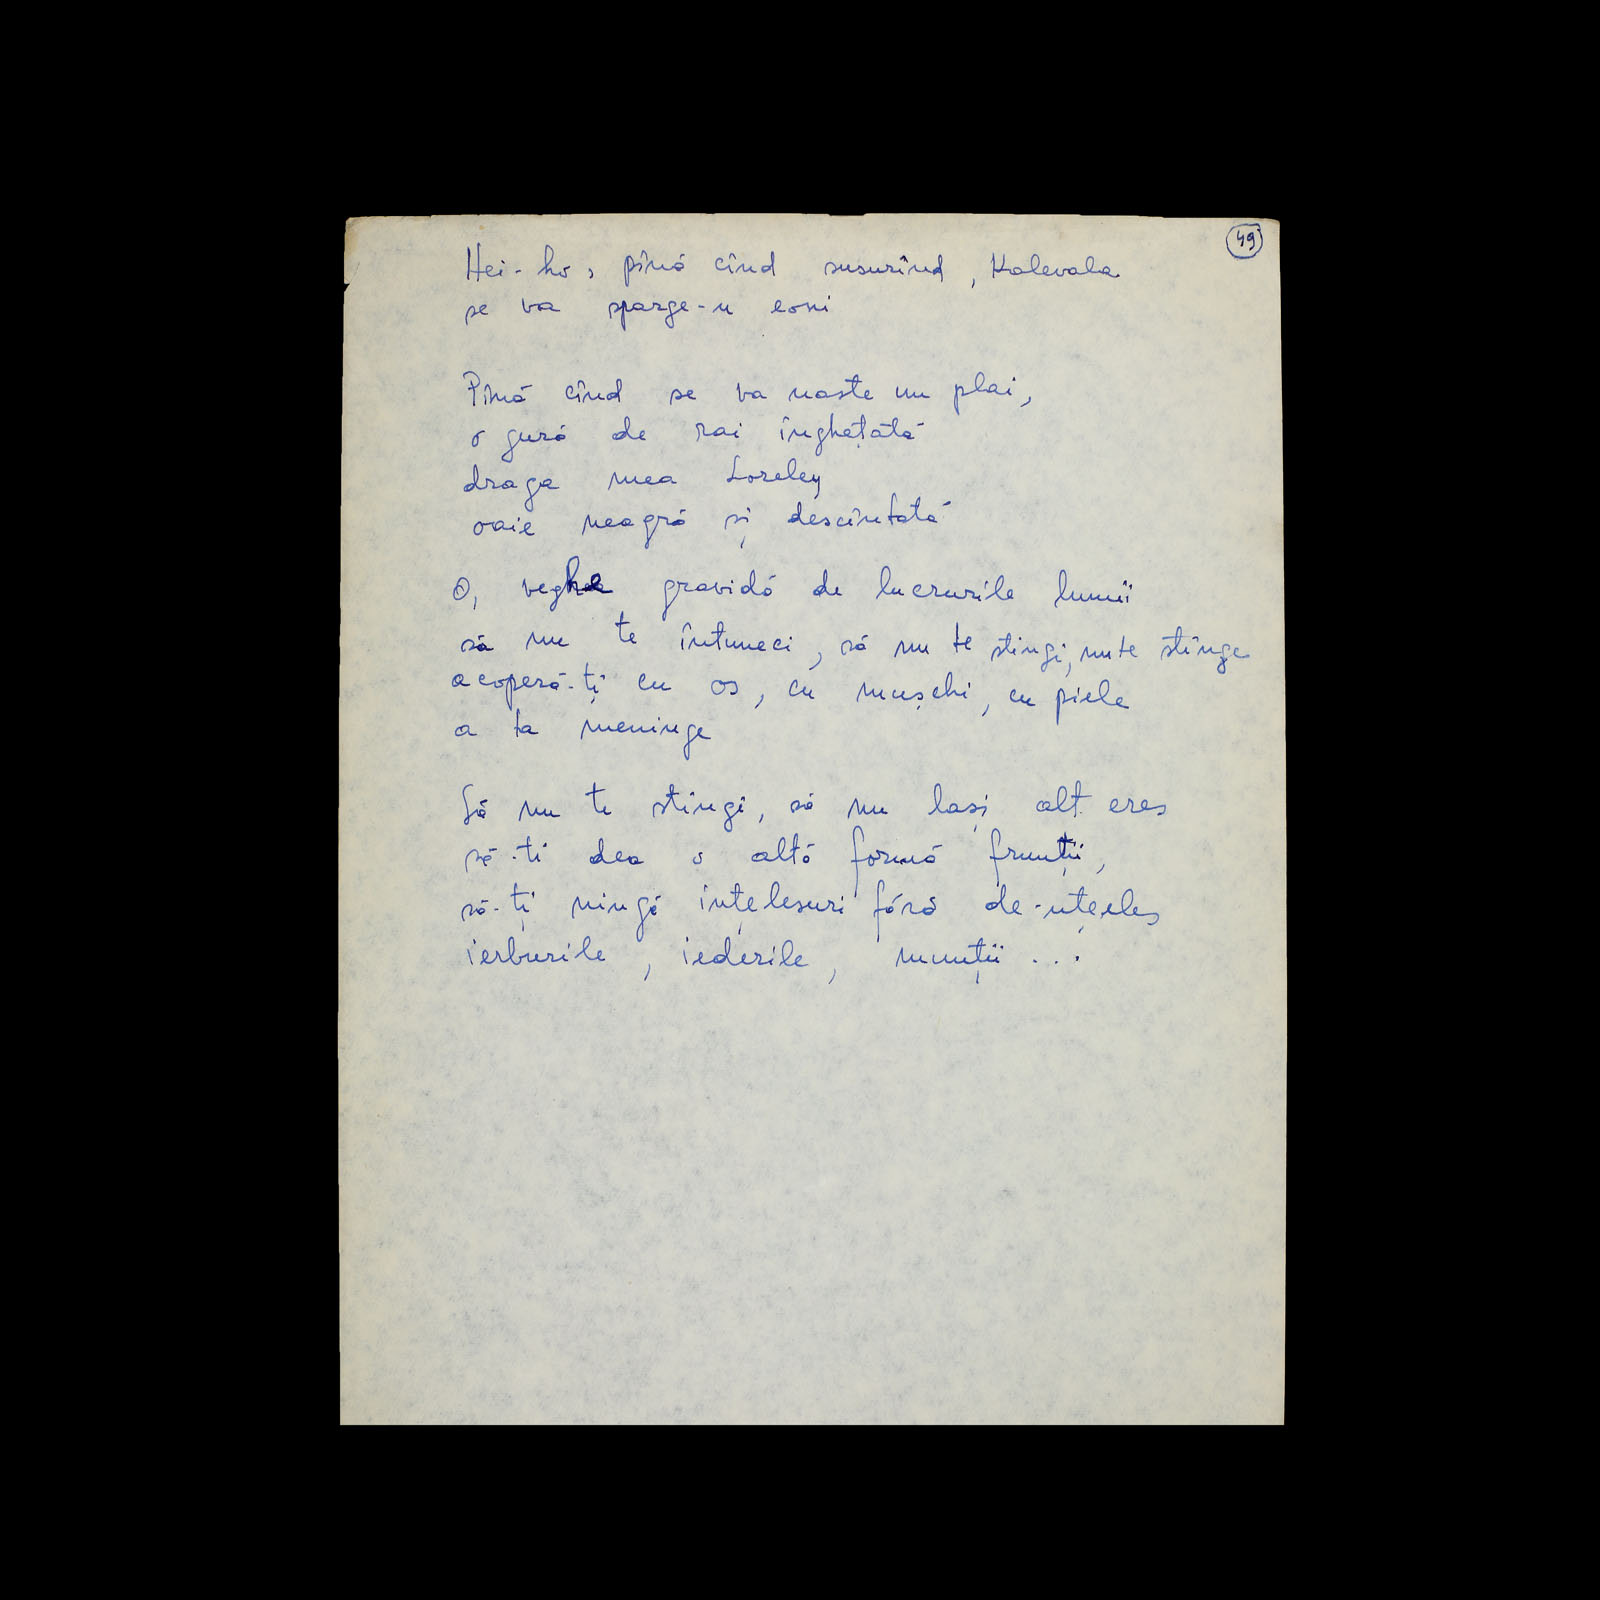 49
Hei-ho, pînă cînd susurînd, Kalevala
se va sparge-n eoni
Pînă cînd se va naste un plai,
o gură de rai înghețată
draga mea Loreley
oaie neagră și descîntată
O, veghe gravidă de lucrurile lumii
să nu te întuneci, să nu te stingi, nu te stinge
acoperă-ți cu os, cu mușchi, cu piele
a ta meninge
Să nu te stingi, să nu lași alt eres
să-ti dea o altă formă frunții,
să-ți ningă ințelesuri fără de-nțeles
ierburile, iederile, munții...